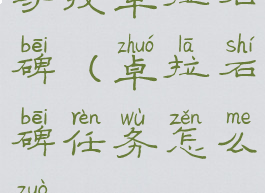 卓拉石
bēi zhuó lā shí
碑（卓拉石
bēi rèn wù zěn me
碑任务怎么
zuò